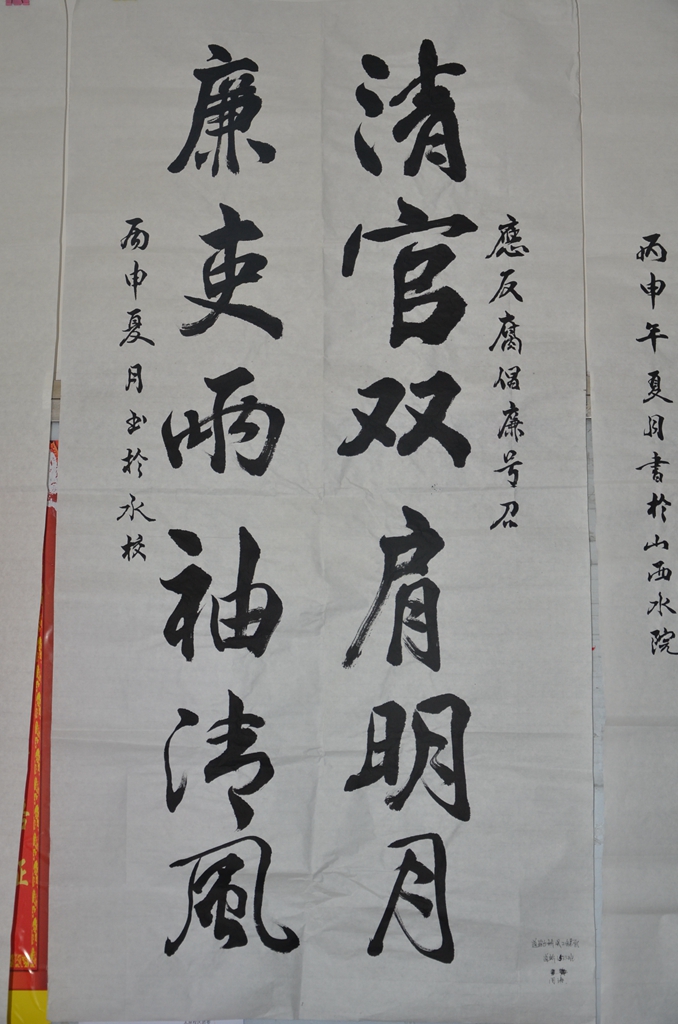 丙申年夏月書於山西水院
應反腐倡廉号召
清官双肩明月
廉吏兩袖清風
丙申夏月书於水校